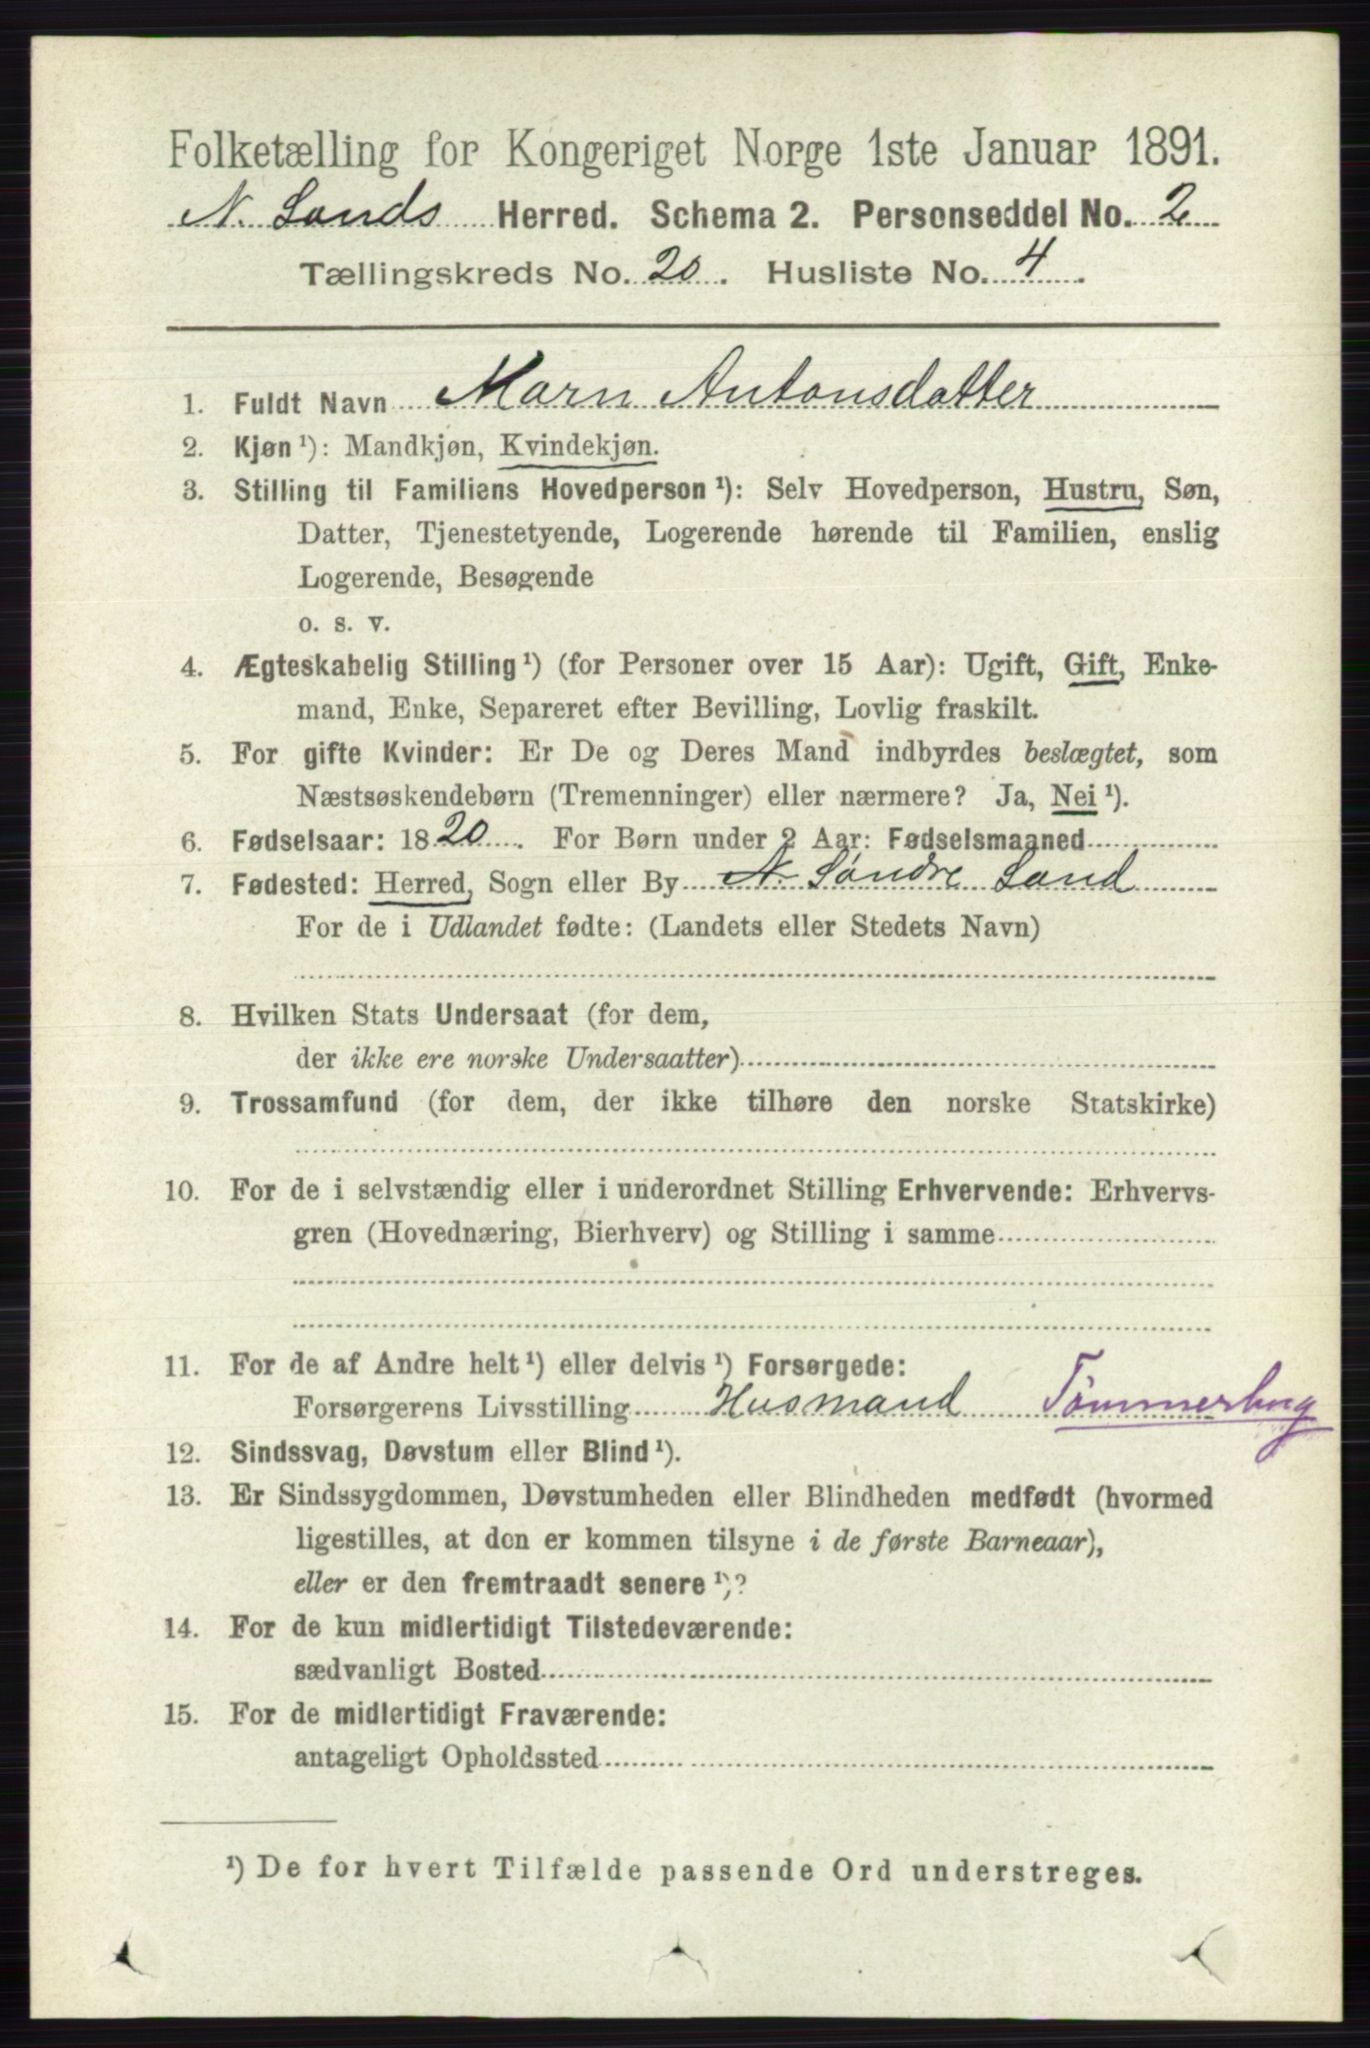 Folketælling for Kongeriget Norge 1ste Januar 1891.
N. Lands Herred. Schema 2. Personseddel No. 2
Tællingskreds No. 20. Husliste No. 4.
1. Fuldt Navn Marn Antonsdatter
2. Kjøn ¹): Mandkjøn, Kvindekjøn.
3. Stilling til Familiens Hovedperson ¹): Selv Hovedperson, Hustru, Søn,
Datter, Tjenestetyende, Logerende hørende til Familien, enslig
Logerende, Besøgende
o. s. v.
4. Ægteskabelig Stilling ¹) (for Personer over 15 Aar): Ugift, Gift, Enke-
mand, Enke, Separeret efter Bevilling, Lovlig fraskilt.
5. For gifte Kvinder: Er De og Deres Mand indbyrdes beslægtet, som
Næstsøskendebørn (Tremenninger) eller nærmere? Ja, Nei ¹).
6. Fødselsaar: 1820. For Børn under 2 Aar: Fødselsmaaned
7. Fødested: Herred, Sogn eller By N. Søndre Land
For de i Udlandet fødte: (Landets eller Stedets Navn)
8. Hvilken Stats Undersaat (for dem,
der ikke ere norske Undersaatter)
9. Trossamfund (for dem, der ikke tilhøre den norske Statskirke)
10. For de i selvstændig eller i underordnet Stilling Erhvervende: Erhvervs-
gren (Hovednæring, Bierhverv) og Stilling i samme
11. For de af Andre helt ¹) eller delvis ¹) Forsørgede:
Forsørgerens Livsstilling Husmand Tömmerhug
12. Sindssvag, Døvstum eller Blind ¹).
13. Er Sindssygdommen, Døvstumheden eller Blindheden medfødt (hvormed
ligestilles, at den er kommen tilsyne i de første Barneaar),
eller er den fremtraadt senere ¹)?
14. For de kun midlertidigt Tilstedeværende:
sædvanligt Bosted
15. For de midlertidigt Fraværende:
antageligt Opholdssted
¹) De for hvert Tilfælde passende Ord understreges.